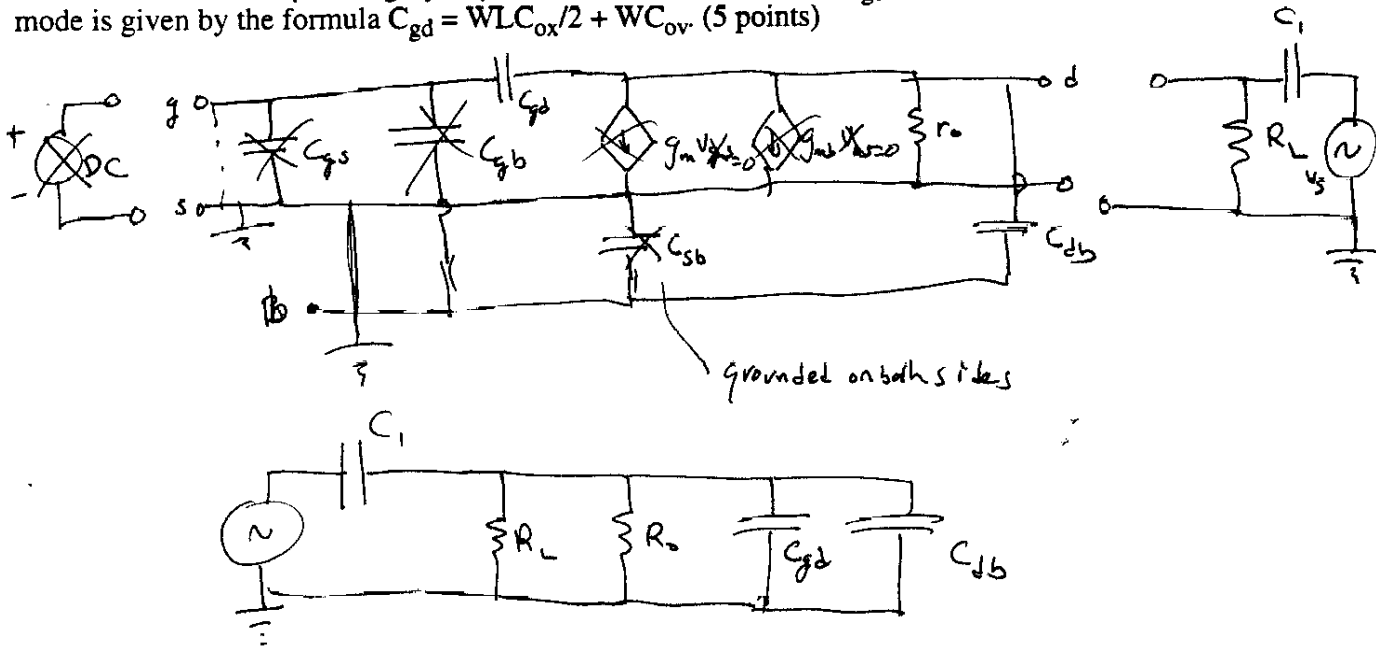 mode is given by the formula C_gd = WLC_ox/2 + WC_ov. (5 points)
C_1
+
DC
-
g
C_gs
C_gb
C_gd
g_m v_gs=0
g_mb v_bs=0
r_o
d
R_L
v_s
s
C_sb
C_db
b
grounded on both sides
C_1
R_L
R_o
C_gd
C_db